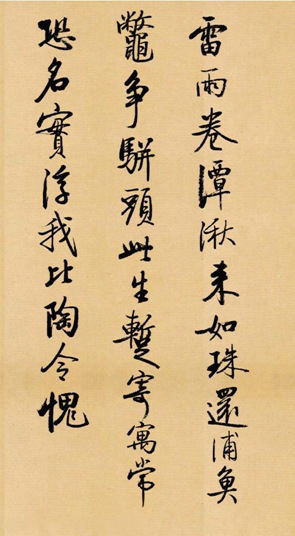 雷雨卷潭湫来如珠還浦魚
鼈争駢頭此生蹔寄寓常
恐名實浮我比陶令愧